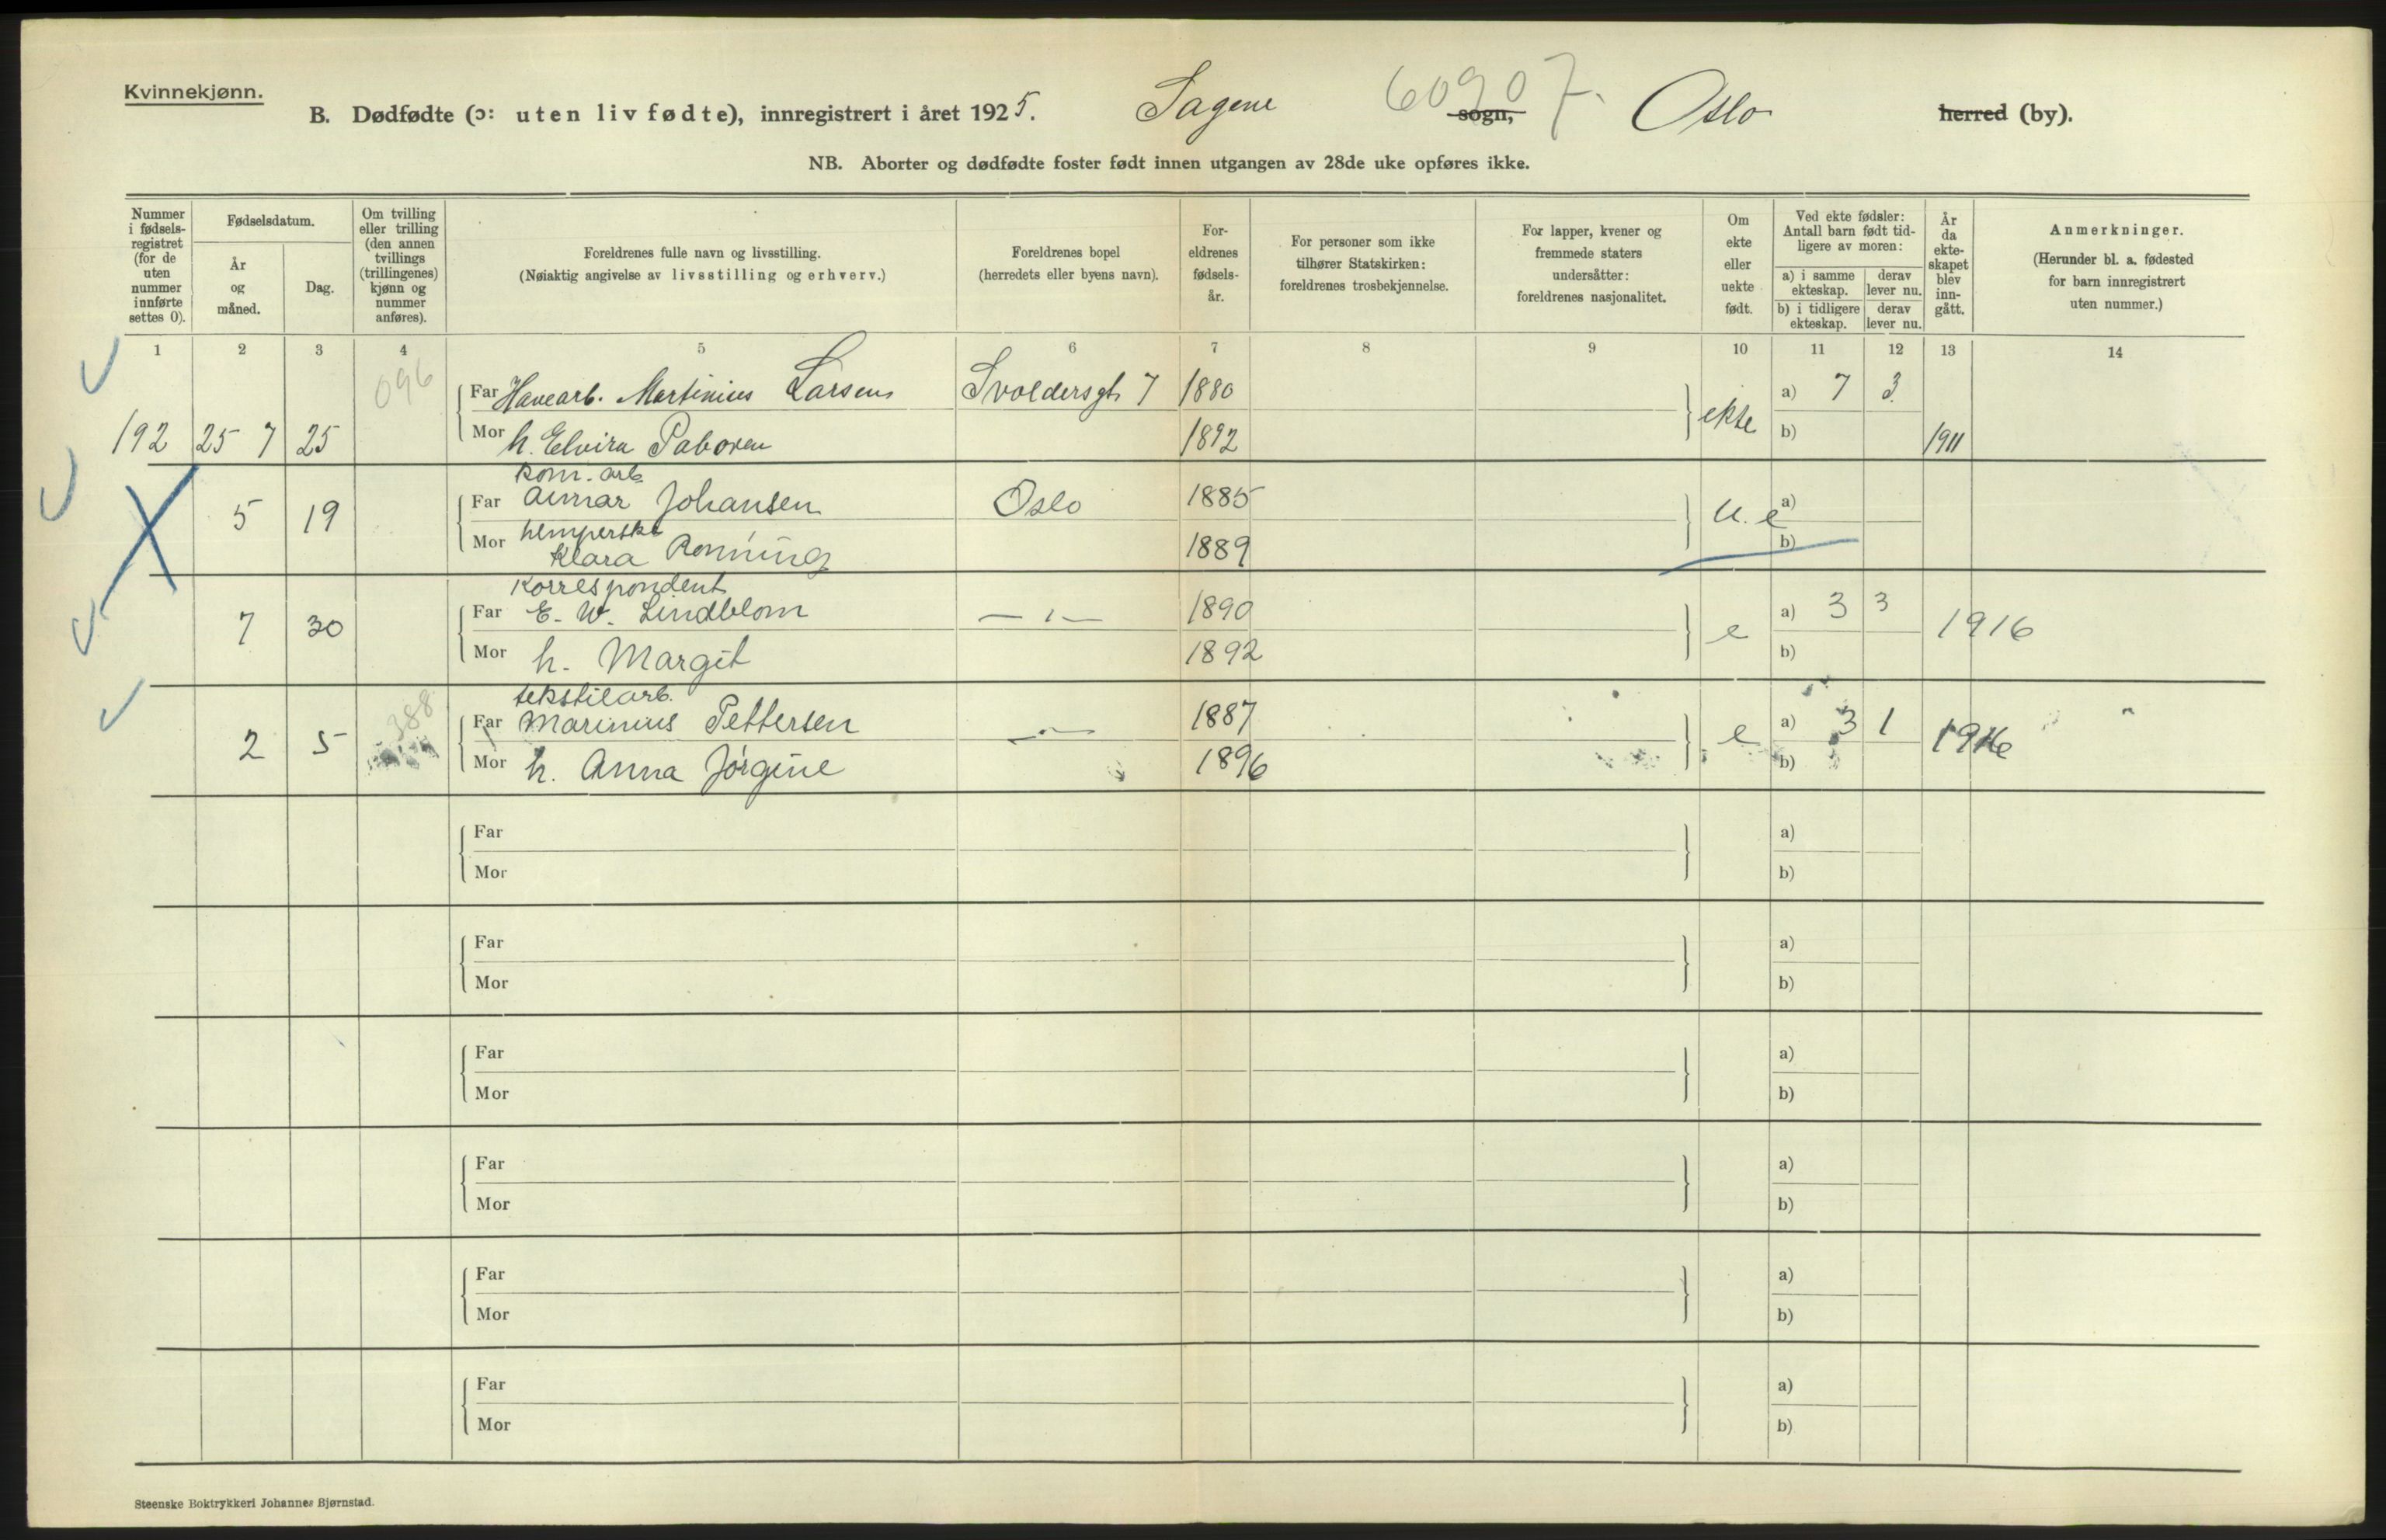 Kvinnekjønn.
B. Dødfødte (ɔ: uten liv fødte), innregistrert i året 1925. Sagene sogn, Oslo herred (by).
60907.
NB. Aborter og dødfødte foster født innen utgangen av 28de uke opføres ikke.
Nummer i fødsels-registret (for de uten nummer innførte settes 0).
Fødselsdatum.
År og måned.
Dag.
Om tvilling eller trilling (den annen tvillings (trillingenes) kjønn og nummer anføres).
Foreldrenes fulle navn og livsstilling.
(Nøiaktig angivelse av livsstilling og erhverv.)
Foreldrenes bopel
(herredets eller byens navn).
For-eldrenes fødsels-år.
For personer som ikke tilhører Statskirken: foreldrenes trosbekjennelse.
For lapper, kvener og fremmede staters undersåtter: foreldrenes nasjonalitet.
Om ekte eller uekte født.
Ved ekte fødsler: Antall barn født tid-ligere av moren:
a) i samme ekteskap.
derav lever nu.
b) i tidligere ekteskap.
derav lever nu.
År da ekte-skapet blev inn-gått.
Anmerkninger.
(Herunder bl. a. fødested for barn innregistrert uten nummer.)
1 2 3 4 5 6 7 8 9 10 11 12 13 14
096
Far Havearb. Martinius Larsen Svoldersgt 7 1880 a) 7 3
192 25 7 25 Mor h. Elvira 1892 ekte b) 1911
kom. arb.
Far Johansen Oslo 1885 a)
5 19 u. e
Mor Klara Rønning 1889 b)
Korrespondent
Far E. W. Lindblom — ı — 1890 a) 3 3
7 30 e 1916
Mor h. Margit 1892 b)
tekstilarb.
388
Far Marinius Pettersen — ı — 1887 a) 3 1
2 5 e 1916
Mor h. Anna Jørgine 1896 b)
Far a)
Mor b)
Far a)
Mor b)
Far a)
Mor b)
Far a)
Mor b)
Far a)
Mor b)
Far a)
Mor b)
Steenske Boktrykkeri Johannes Bjørnstad.